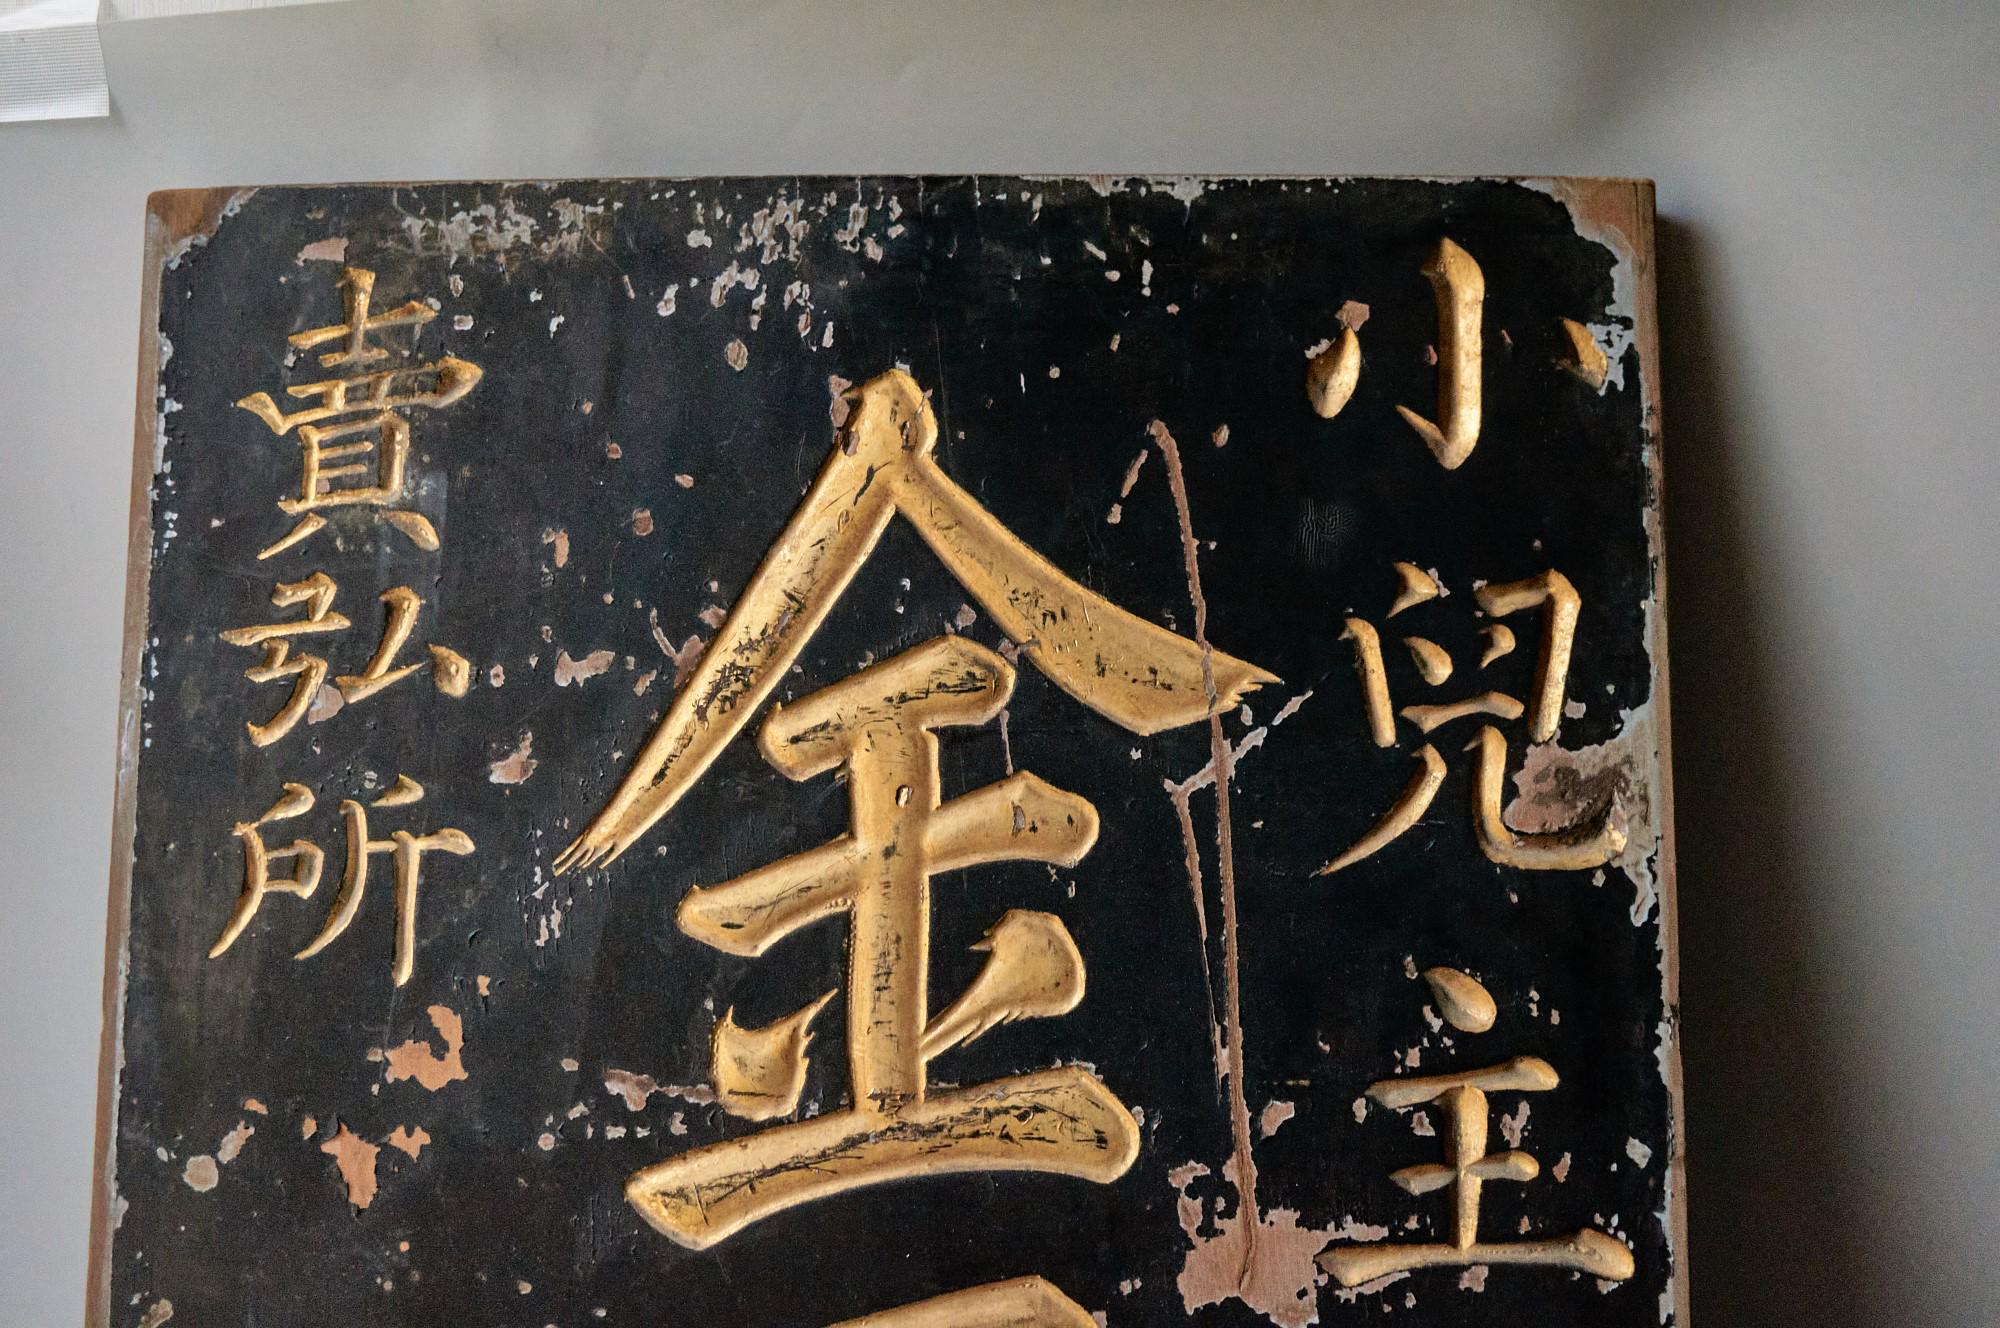 小兒主
金
賣弘所